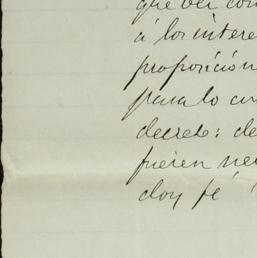 que ver con
á los intere
proporción
para lo cu
decreto: de
fueren ne
doy fé